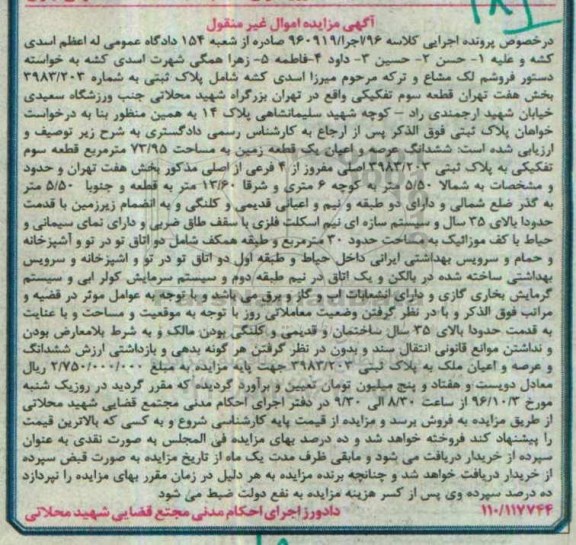 آگهی مزایده اموال غیر منقول
درخصوص پرونده اجرایی کلاسه ۹۶/اجرا/۹۶۰۹۱۹ صادره از شعبه ۱۵۴ دادگاه عمومی له اعظم اسدی
کشه و علیه ۱- حسن ۲- حسین ۳- داود ۴-فاطمه ۵- زهرا همگی شهرت اسدی کشه به خواسته
دستور فروشم لک مشاع و ترکه مرحوم میرزا اسدی کشه شامل پلاک ثبتی به شماره ۳۹۸۳/۲۰۳
بخش هفت تهران قطعه سوم تفکیکی واقع در تهران بزرگراه شهید محلاتی جنب ورزشگاه سعیدی
خیابان شهید ارجمندی راد – کوچه شهید سلیمانشاهی پلاک ۱۴ به همین منظور بنا به درخواست
خواهان پلاک ثبتی فوق الذکر پس از ارجاع به کارشناس رسمی دادگستری به شرح زیر توصیف و
ارزیابی شده است: ششدانگ عرصه و اعیان یک قطعه زمین به مساحت ۷۳/۹۵ مترمربع قطعه سوم
تفکیکی به پلاک ثبتی ۳۹۸۳/۲۰۳ اصلی مفروز از ۴ فرعی از اصلی مذکور بخش هفت تهران و حدود
و مشخصات به شمالا ۵/۵۰ متر به کوچه ۶ متری و شرقا ۱۳/۶۰ متر به قطعه و جنوبا ۵/۵۰ متر
به گذر ضلع شمالی و دارای دو طبقه و نیم و اعیانی قدیمی و کلنگی و به انضمام زیرزمین با قدمت
حدودا بالای ۳۵ سال و سیستم سازه ای نیم اسکلت فلزی با سقف طاق ضربی و دارای نمای سیمانی و
حیاط با کف موزائیک به مساحت حدود ۳۰ مترمربع و طبقه همکف شامل دو اتاق تو در تو و آشپزخانه
و حمام و سرویس بهداشتی ایرانی داخل حیاط و طبقه اول دو اتاق تو در تو و اشپزخانه و سرویس
بهداشتی ساخته شده در بالکن و یک اتاق در نیم طبقه دوم و سیستم سرمایش کولر ابی و سیستم
گرمایش بخاری گازی و دارای انشعابات اب و گاز و برق می باشد و با توجه به عوامل موثر در قضیه و
مراتب فوق الذکر و با در نظر گرفتن وضعیت معاملاتی روز با توجه به موقعیت و مساحت و با عنایت
به قدمت حدودا بالای ۳۵ سال ساختمان و قدیمی و کلنگی بودن مالک و به شرط بلامعارض بودن
و نداشتن موانع قانونی انتقال سند و بدون در نظر گرفتن هر گونه بدهی و بازداشتی ارزش ششدانگ
و عرصه و اعیان ملک به پلاک ثبتی ۳۹۸۳/۲۰۳ جهت پایه مزایده به مبلغ ۲/۷۵۰/۰۰۰/۰۰۰ ریال
معادل دویست و هفتاد و پنج میلیون تومان تعیین و برآورد گردیده که مقرر گردید در روزیک شنبه
مورخ ۹۶/۱۰/۳ از ساعت ۸/۳۰ الی ۹/۳۰ در دفتر اجرای احکام مدنی مجتمع قضایی شهید محلاتی
از طریق مزایده به فروش برسد و مزایده از قیمت پایه کارشناسی شروع و به کسی که بالاترین قیمت
را پیشنهاد کند فروخته خواهد شد و ده درصد بهای مزایده فی المجلس به صورت نقدی به عنوان
سپرده از خریدار دریافت می شود و مابقی ظرف مدت یک ماه از تاریخ مزایده به صورت قبض سپرده
از خریدار دریافت خواهد شد و چنانچه برنده مزایده به هر دلیل در زمان مقرر بهای مزایده را نپردازد
ده درصد سپرده وی پس از کسر هزینه مزایده به نفع دولت ضبط می شود
۱۱۰/۱۱۷۷۴۴ دادورز اجرای احکام مدنی مجتمع قضایی شهید محلاتی